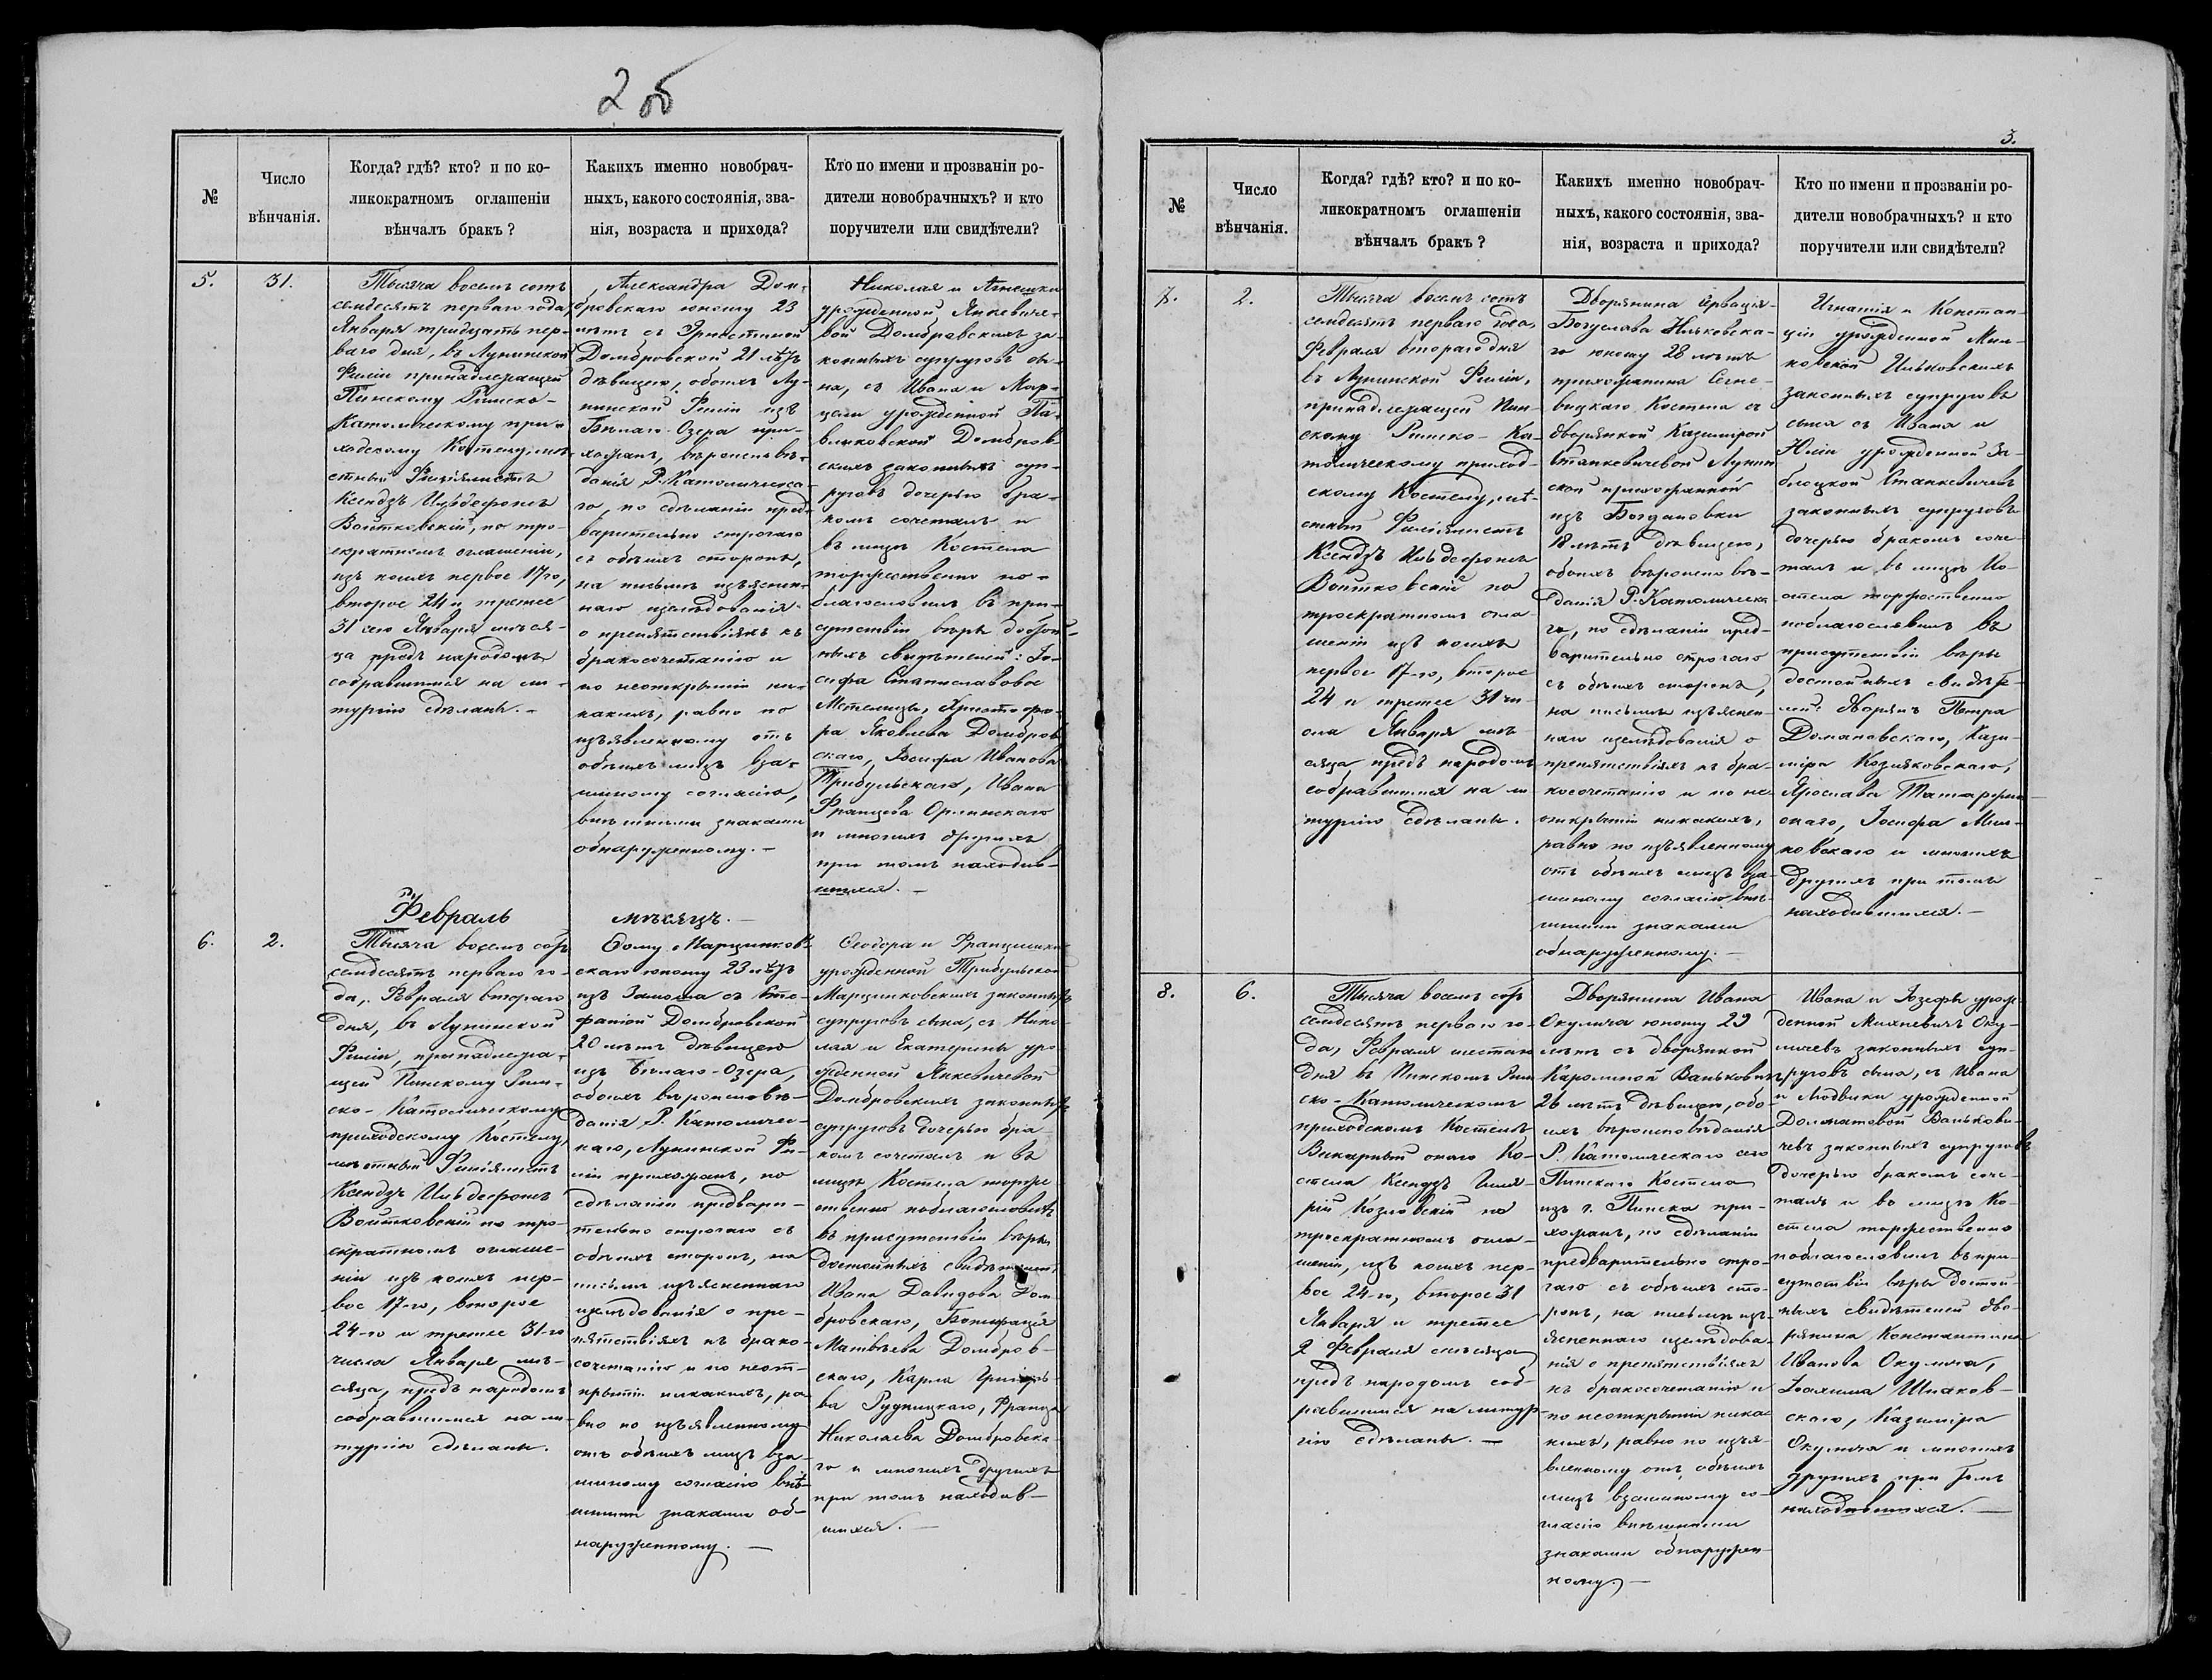 2 об
№
Число
вѣнчанія.
Когда? гдѣ? кто? и по ко-
ликократномъ оглашеніи
вѣнчалъ бракъ?
Какихъ именно новобрач-
ныхъ, какого состоянія, зва-
нія, возраста и прихода?
Кто по имени и прозваніи ро-
дители новобрачныхъ? и кто
поручители или свидѣтели?
5.
31.
Тысяча восемь сотъ
семдесятъ перваго года,
Января тридцать пер-
ваго дня, въ Лунинской
Филіи принадлежащей
Пинскому Римско-
Католическому при-
ходскому Костелу, мѣ-
стный Филіялистъ
Ксендзъ Ильдефонсъ
Войтковскій, по тро-
екратномъ оглашеніи,
изъ коихъ первое 17го,
второе 24 и третее
31 сего Января мѣся-
ца предъ народомъ
собравшимся на ли-
тургію сдѣланы. -
Александра Дом-
бровскаго юношу 23
лѣтъ съ
Домбровской 21 лѣтъ
дѣвицею, обоихъ Лу-
нинской Филіи изъ
Бѣлаго-Озера при-
хожанъ, вѣроисповѣ-
данія Р. Католическа-
го, по сдѣланіи пред-
варительно строгаго
съ обѣихъ сторонъ,
на письмѣ изъяснен-
наго изслѣдованія
о препятствіяхъ къ
бракосочетанію и
по неоткрытіи ни-
какихъ, равно по
изъявленному отъ
обѣихъ лицъ вза-
имному согласію,
внѣшними знаками
обнаруженному. -
Николая и Агнешки
урожденной Янкевиче-
вой Домбровскихъ за-
конныхъ супруговъ сы-
на, съ Ивана и Мар-
цели урожденной Па-
вликовской Домбров-
скихъ законныхъ суп-
руговъ дочерью бра-
комъ сочеталъ и
въ лицѣ Костела
торжественно по-
благословилъ въ при-
сутствіи вѣры достой-
ныхъ свидѣтелей: Іо-
сифа Станиславова
Метелицы, Христофо-
ра Яковлева Домбров-
скаго, Іосифа Иванова
Трибульскаго, Ивана
Францева Орлинскаго
и многихъ другихъ
при томъ находив-
шихся. -
Февраль
мѣсяцъ. -
6.
2.
Тысяча восемь сотъ
семдесятъ перваго го-
да, Февраля втораго
дня, въ Лунинской
Филіи, принадлежа-
щей Пинскому Рим-
ско-Католическому
приходскому Костелу,
мѣстный Филіялистъ
Ксендзъ Ильдефонсъ
Войтковскій по тро-
екратномъ оглаше-
ніи изъ коихъ пер-
вое 17-го, второе
24-го и третее 31-го
числа Января мѣ-
сяца, предъ народомъ
собравшимся на ли-
тургію сдѣланы.
Ѳому Марцинков-
скаго юношу 23 лѣтъ
изъ съ Сте-
фаніей Домбровской
20 лѣтъ дѣвицею
изъ Бѣлаго-Озера,
обоихъ вѣроисповѣ-
данія Р. Католичес-
каго, Лунинской Фи-
ліи прихожанъ, по
сдѣланіи предвари-
тельно строгаго съ
обѣихъ сторонъ, на
письмѣ изъясненнаго
изслѣдованія о пре-
пятствіяхъ къ брако-
сочетанію и по неот-
крытіи никакихъ, ра-
вно по изъявленному
отъ обѣихъ лицъ вза-
имному согласію внѣ-
шними знаками об-
наруженному. -
Ѳеодора и Францишки
урожденной Трибульской
Марцинковскихъ законныхъ
супруговъ сына, съ Нико-
лая и Екатерины уро-
жденной Янкевичевой
Домбровскихъ законныхъ
супруговъ дочерью бра-
комъ сочеталъ и въ
лицѣ Костела торже-
ственно поблагословилъ
въ присутствіи вѣры
достойныхъ свидѣтелей:
Ивана Давидова Дом-
бровскаго, Бонифація
Матвѣева Домбров-
скаго, Карла Григорь-
ва Рудницкаго, Франца
Николаева Домбровска-
го и многихъ другихъ
при томъ находив-
шихся. -
3.
№
Число
вѣнчанія.
Когда? гдѣ? кто? и по ко-
ликократномъ оглашеніи
вѣнчалъ бракъ?
Какихъ именно новобрач-
ныхъ, какого состоянія, зва-
нія, возраста и прихода?
Кто по имени и прозваніи ро-
дители новобрачныхъ? и кто
поручители или свидѣтели?
7.
2.
Тысяча восемь сотъ
семдесятъ перваго года,
Февраля втораго дня
въ Лунинской Филіи,
принадлежащей Пин-
скому Римско-Ка-
толическому приход-
скому Костелу, мѣ-
стный Филіялистъ
Ксендзъ Ильдефонсъ
Войтковскій по
троекратномъ огла-
шеніи изъ коихъ
первое 17-го, второе
24 и третее 31 чи-
сла Января мѣ-
сяца предъ народомъ
собравшимся на ли-
тургію сдѣланы.
Дворянина
Богуслава
го юношу 28 лѣтъ
прихожанина
Костела съ
дворянкой Казимірой
Станкевичевой Лунин-
ской прихожанкой
изъ Богдановки
18 лѣтъ дѣвицею,
обоихъ вѣроисповѣ-
данія Р. Католическа-
го, по сдѣланіи пред-
варительно строгаго
съ обѣихъ сторонъ,
на письмѣ изъяснен-
наго изслѣдованія о
препятствіяхъ къ бра-
косочетанію и по не-
открытіи никакихъ,
равно по изъявленному
отъ обѣихъ лицъ вза-
имному согласію внѣ-
шними знаками
обнаруженному. -
Игнатія и Констан-
ціи урожденной Мил-
ковской
законныхъ супруговъ
сына съ Ивана и
Юліи урожденной За-
блоцкой Станкевичевъ
законныхъ супруговъ
дочерью бракомъ соче-
талъ и въ лицѣ Ко-
стела торжественно
поблагословилъ въ
присутствіи вѣры
достойныхъ свидѣте-
лей: Дворянъ Петра
Домановскаго, Кази-
міра Козляковскаго,
Ярослава
скаго, Іосифа Мил-
ковскаго и многихъ
другихъ при томъ
находившихся. -
8.
6.
Тысяча восемь сотъ
семдесятъ перваго го-
да, Февраля шестаго
дня въ Пинскомъ Рим-
ско-Католическомъ
приходскомъ Костелѣ
Викарный онаго Ко-
стела Ксендзъ Гила-
рій Козловскій по
троекратномъ огла-
шеніи, изъ коихъ пер-
вое 24-го, второе 31
Января и третее
2 Февраля мѣсяца
предъ народомъ соб-
равшимся на литур-
гію сдѣланы. -
Дворянина Ивана
Окулича юношу 29
лѣтъ съ дворянкой
Каролиной Ваньковичъ
26 лѣтъ дѣвицею, обо-
ихъ вѣроисповѣданія
Р. Католическаго сего
Пинскаго Костела
изъ г. Пинска при-
хожанъ, по сдѣланіи
предварительно стро-
гаго съ обѣихъ сто-
ронъ, на письмѣ изъ-
ясненнаго изслѣдова-
нія о препятствіяхъ
къ бракосочетанію и
по неоткрытіи ника-
кихъ, равно по изъя-
вленному отъ обѣихъ
лицъ взаимному со-
гласію внѣшними
знаками обнаружен-
ному. -
Ивана и Іозефы урож-
денной Михневичъ Оку-
личевъ законныхъ суп-
руговъ сына, съ Ивана
и Людвики урожденной
Долматовой Ванькови-
чевъ законныхъ супруговъ
дочерью бракомъ соче-
талъ и во лицѣ Ко-
стела торжественно
поблагословилъ въ при-
сутствіи вѣры достой-
ныхъ свидѣтелей дво-
рянина Константина
Иванова Окулича,
Іоахима Шпаков-
скаго, Казиміра
Окулича и многихъ
другихъ при томъ
находившихся. -